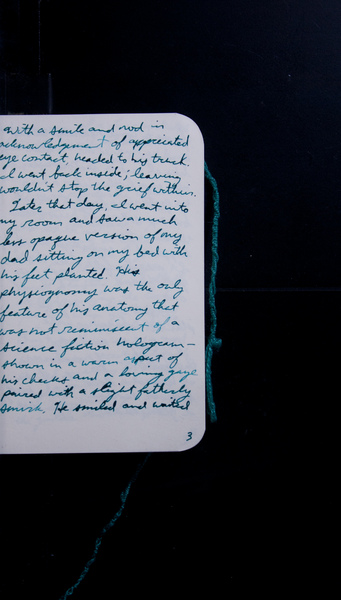 with a smile and nod in
acknowledgement of appreciated
eye contact, headed to his truck.
I went back inside; leaving
wouldn't stop the grief within.
Later that day, I went into
my room and saw a much
less opaque version of my
dad sitting on my bed with
his feet planted. His
physiognomy was the only
feature of his anatomy that
was not reminiscent of a
science fiction hologram—
shown in a warm aspect of
his cheeks and a loving gaze
paired with a slight fatherly
smirk. He smiled and waited
3